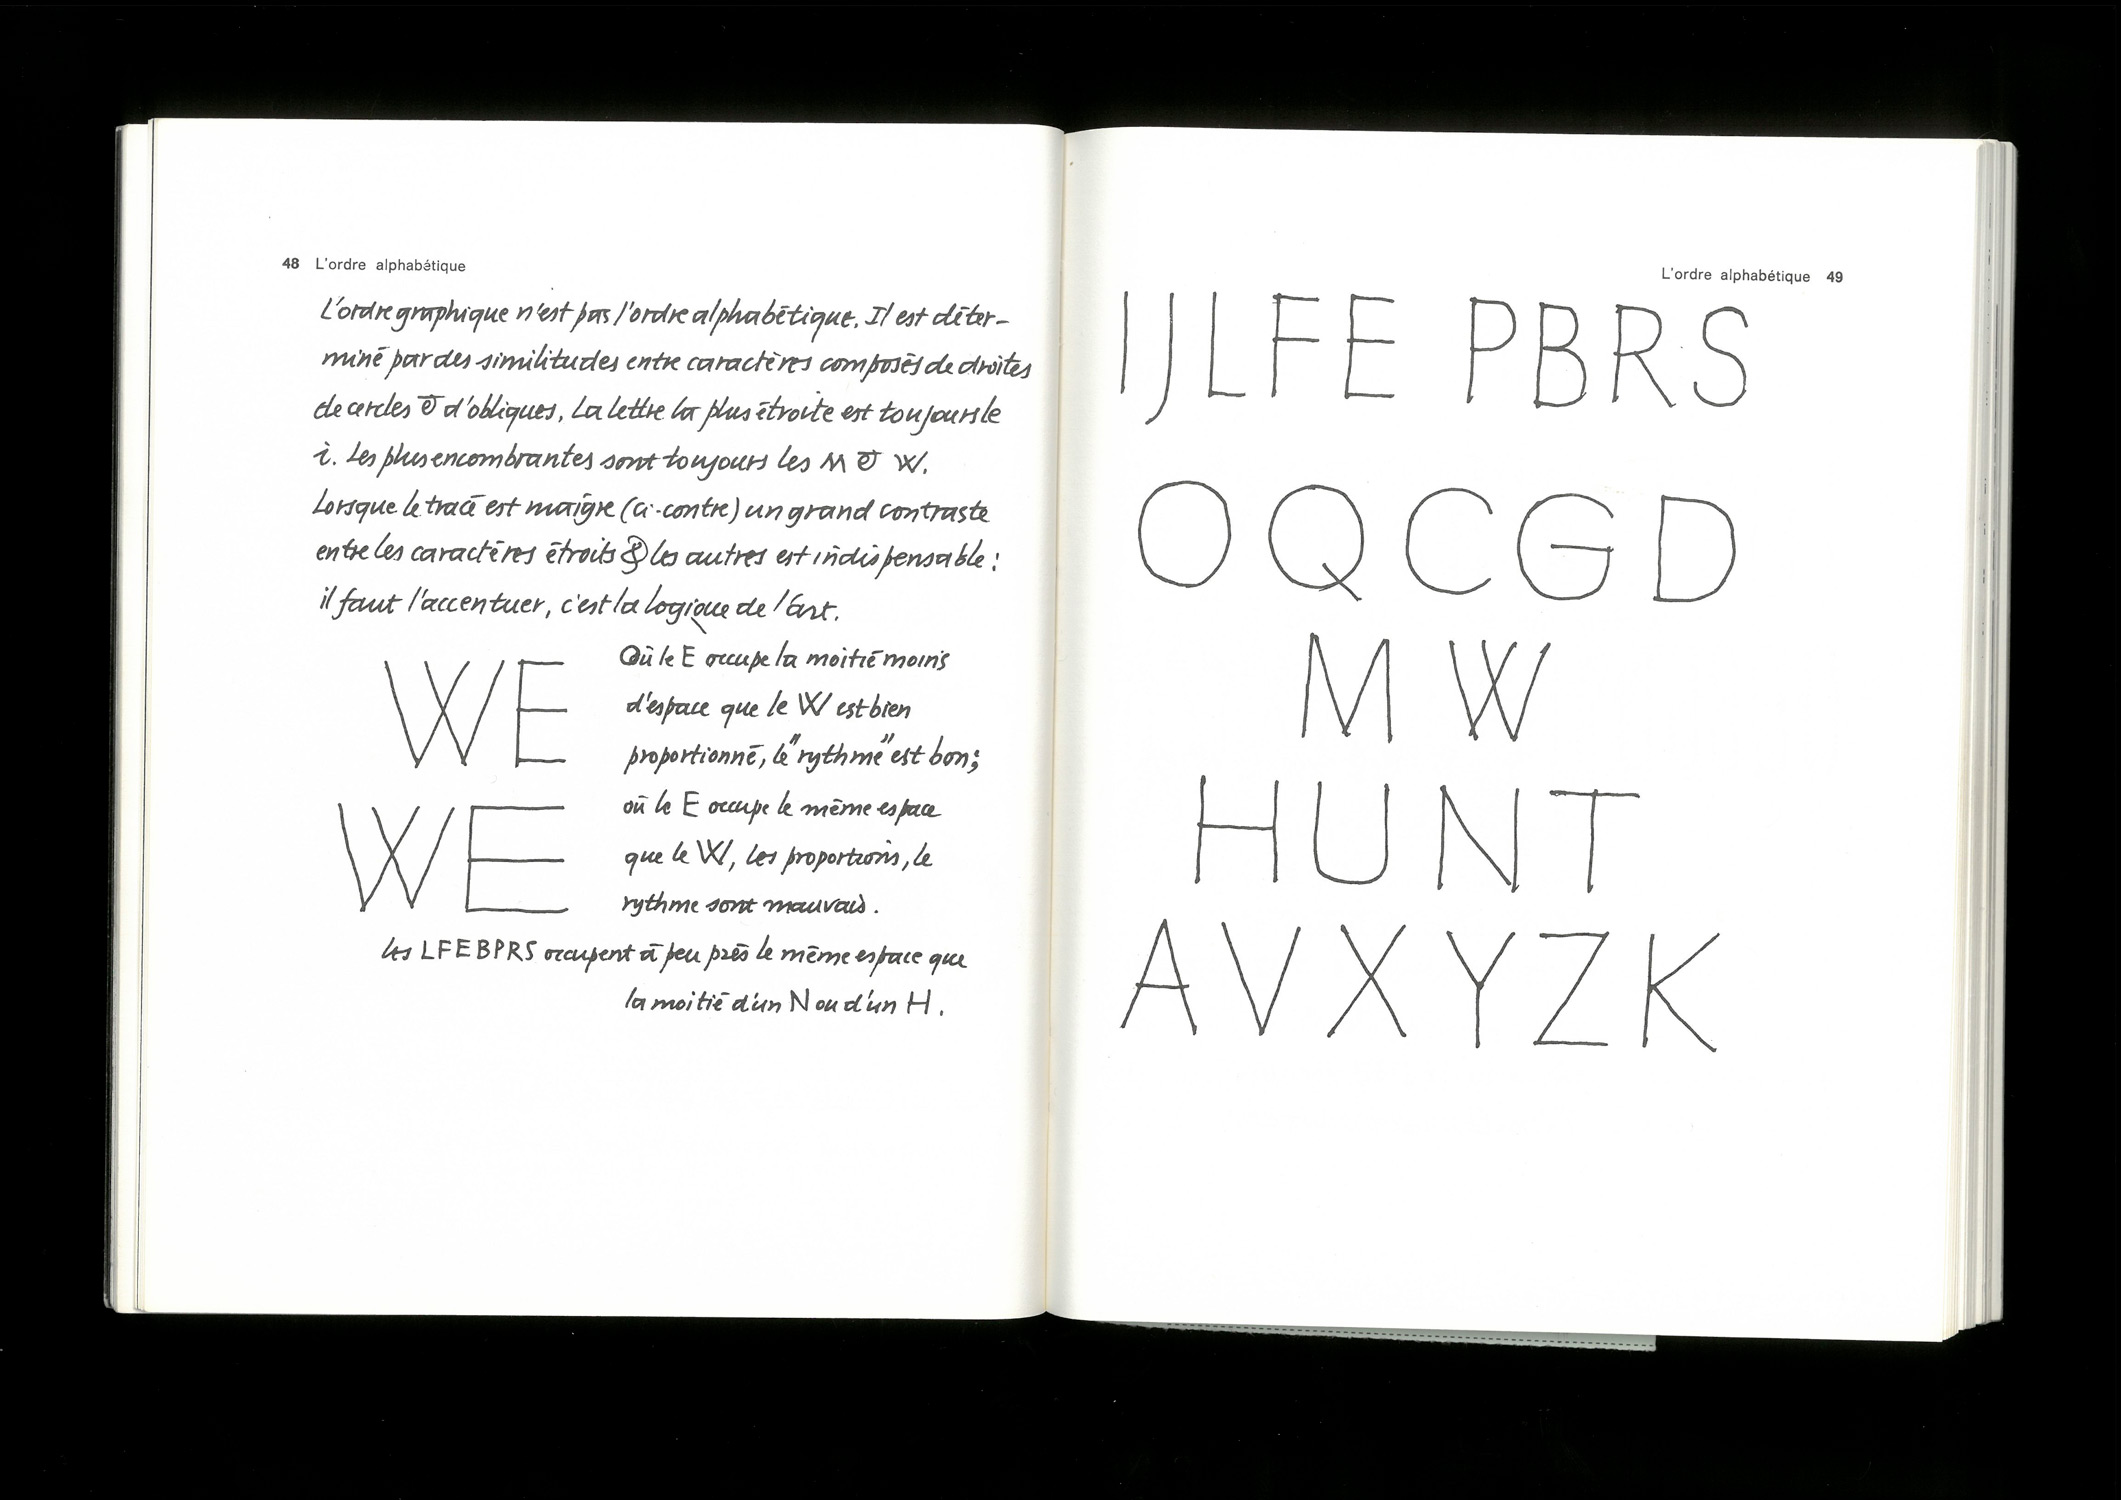 48 L'ordre alphabétique
L'ordre graphique n'est pas l'ordre alphabétique. Il est déter-
miné par des similitudes entre caractères composés de droites
de cercles & d'obliques. La lettre la plus étroite est toujours le
i. Les plus encombrantes sont toujours les M & W.
Lorsque le tracé est maigre (ci-contre) un grand contraste
entre les caractères étroits & les autres est indispensable :
il faut l'accentuer, c'est la logique de l'art.
WE
Où le E occupe la moitié moins
d'espace que le W est bien
proportionné, le "rythme" est bon;
WE
où le E occupe le même espace
que le W, les proportions, le
rythme sont mauvais.
Les LFEBPRS occupent à peu près le même espace que
la moitié d'un N ou d'un H.
L'ordre alphabétique 49
IJLFE PBRS
OQCGD
MW
HUNT
AVXYZK